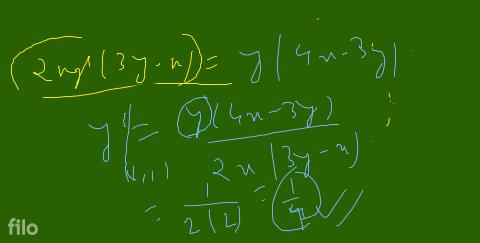 2xy'(3y-x) = y(4x-3y)
y'|(1,1) = y(4x-3y) / 2x(3y-x)
= 1 / 2(2) = 1/4
filo